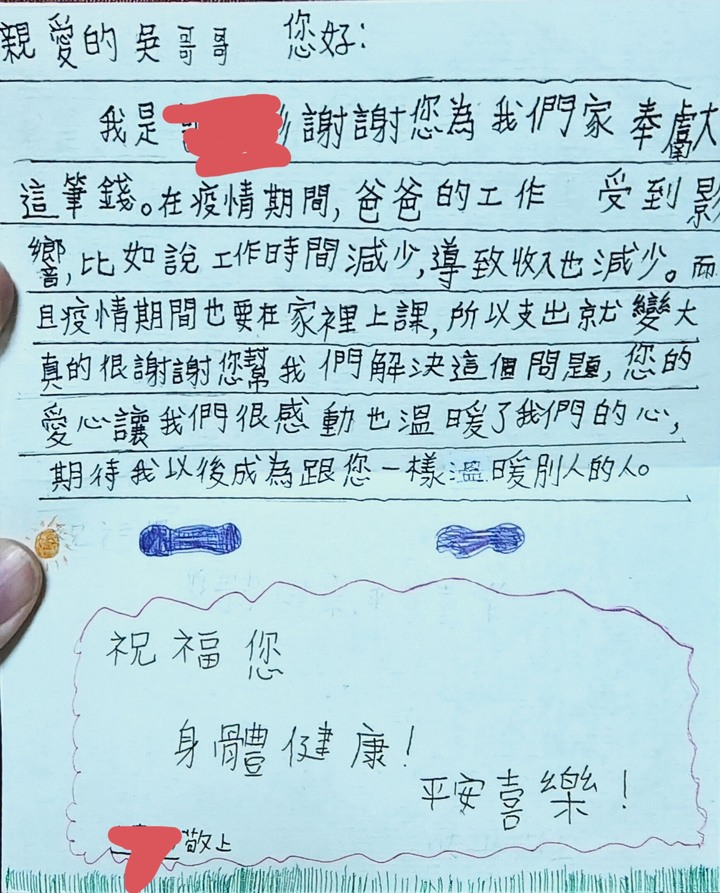 親愛的吳哥哥 您好:
我是 謝謝您為我們家奉獻
這筆錢。在疫情期間,爸爸的工作 受到影
響,比如說工作時間減少,導致收入也減少。而
且疫情期間也要在家裡上課,所以支出就變大
真的很謝謝您幫我們解決這個問題,您的
愛心讓我們很感動也溫暖了我們的心,
期待我以後成為跟您一樣溫暖別人的人。
祝福您
身體健康!
平安喜樂!
敬上